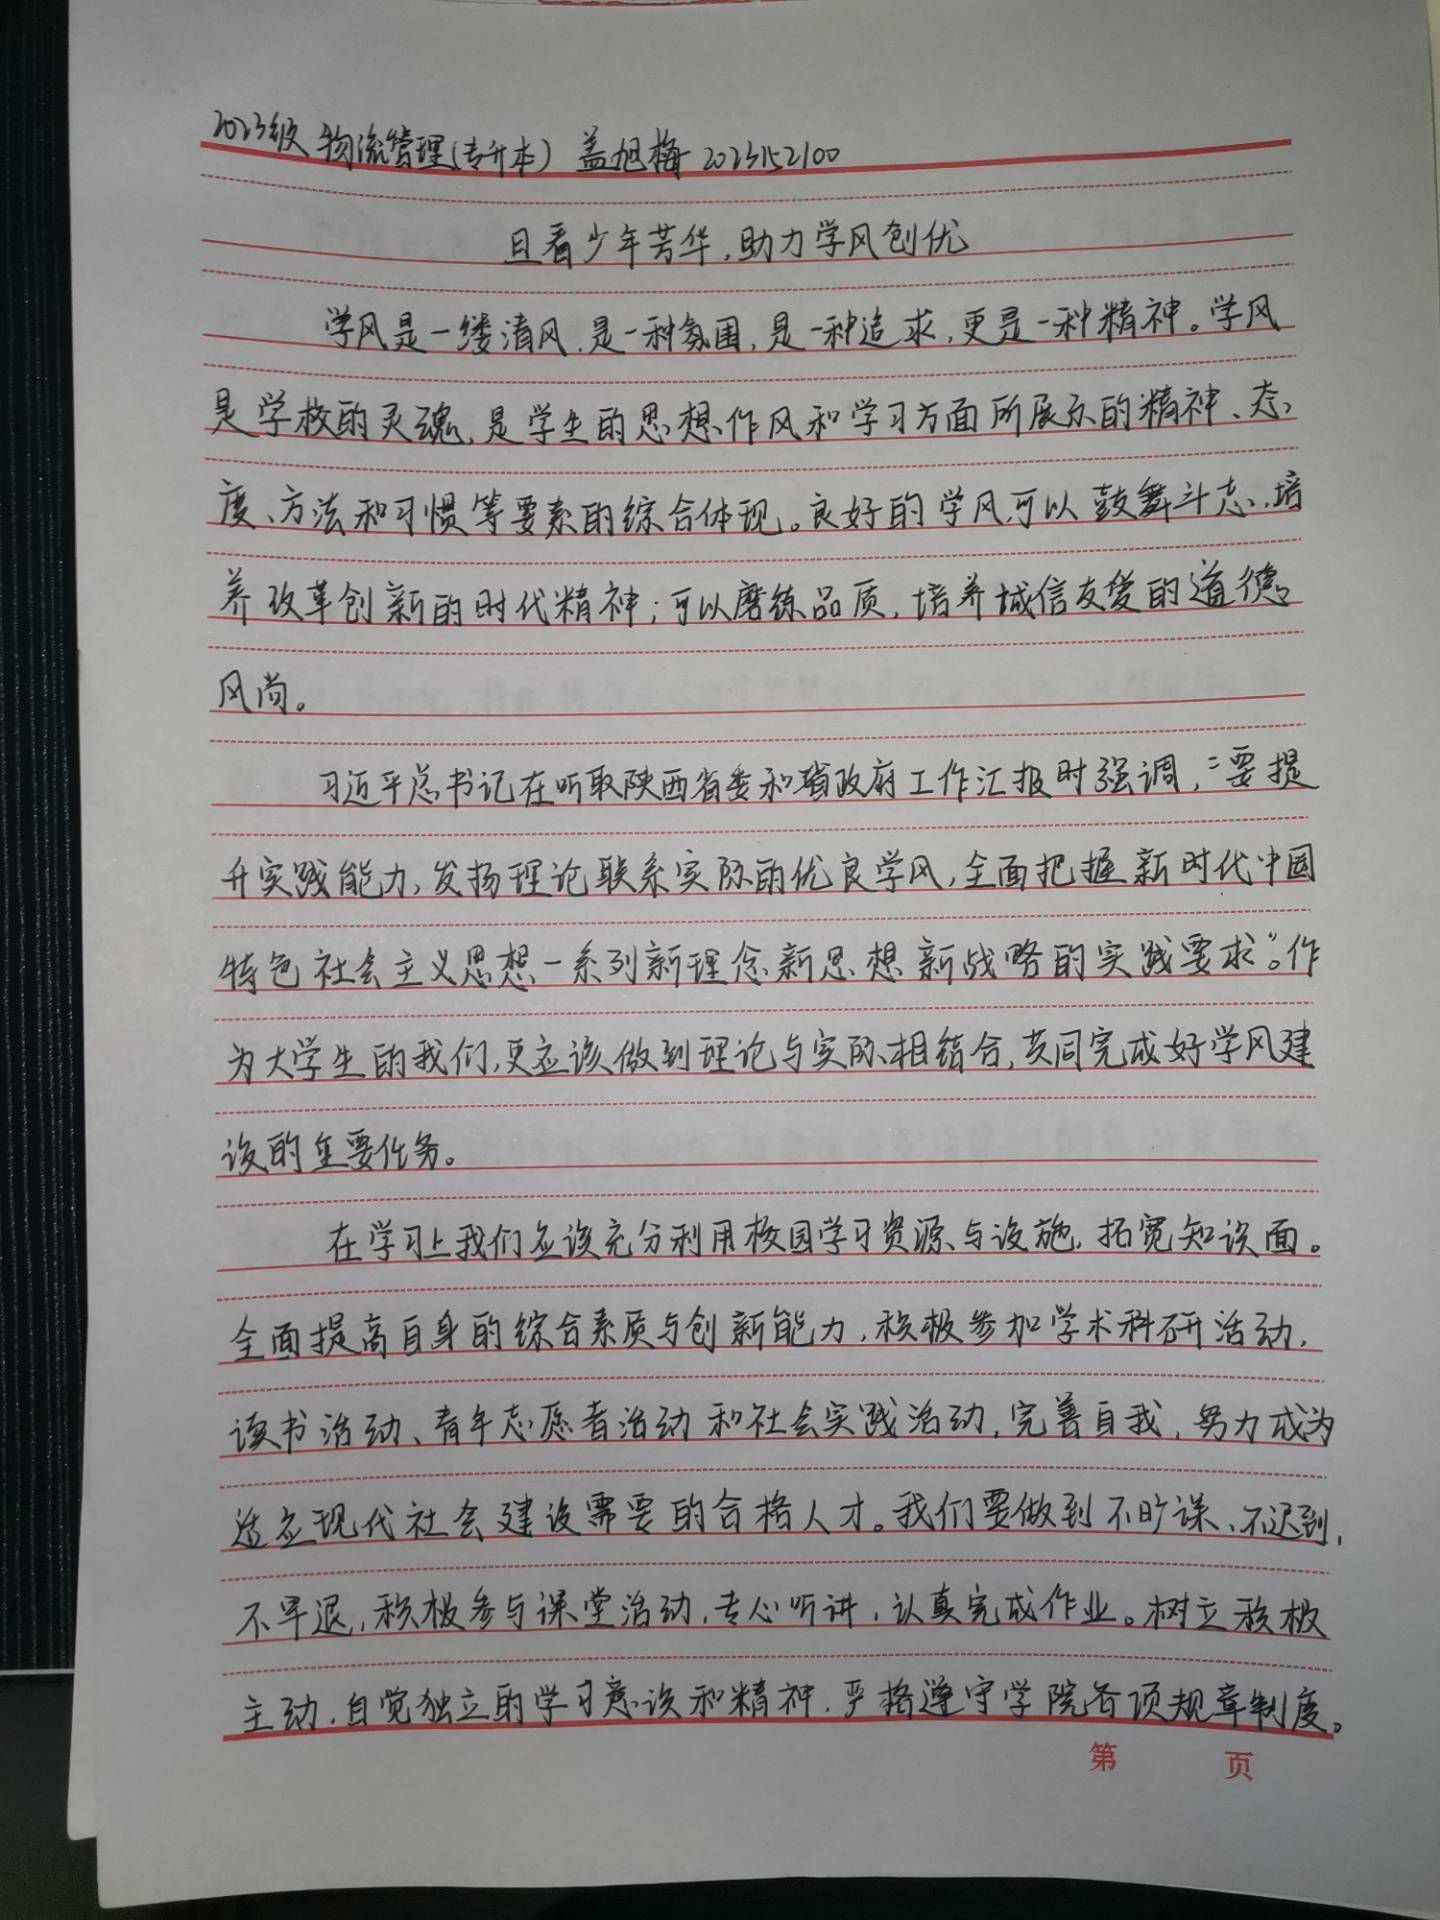 2023级 物流管理(专升本) 盖旭梅 2023152100
且看少年芳华,助力学风创优
学风是一缕清风,是一种氛围,是一种追求,更是一种精神。学风
是学校的灵魂,是学生的思想作风和学习方面所展示的精神、态
度、方法和习惯等要素的综合体现。良好的学风可以鼓舞斗志,培
养改革创新的时代精神;可以磨练品质,培养诚信友爱的道德
风尚。
习近平总书记在听取陕西省委和省政府工作汇报时强调,“要提
升实践能力,发扬理论联系实际的优良学风,全面把握新时代中国
特色社会主义思想一系列新理念新思想新战略的实践要求”。作
为大学生的我们,更应该做到理论与实际相结合,共同完成好学风建
设的重要任务。
在学习上我们应该充分利用校园学习资源与设施,拓宽知识面。
全面提高自身的综合素质与创新能力,积极参加学术科研活动,
读书活动、青年志愿者活动和社会实践活动,完善自我,努力成为
适应现代社会建设需要的合格人才。我们要做到不旷课、不迟到,
不早退,积极参与课堂活动,专心听讲,认真完成作业。树立积极
主动,自觉独立的学习意识和精神,严格遵守学院各项规章制度。
第 页